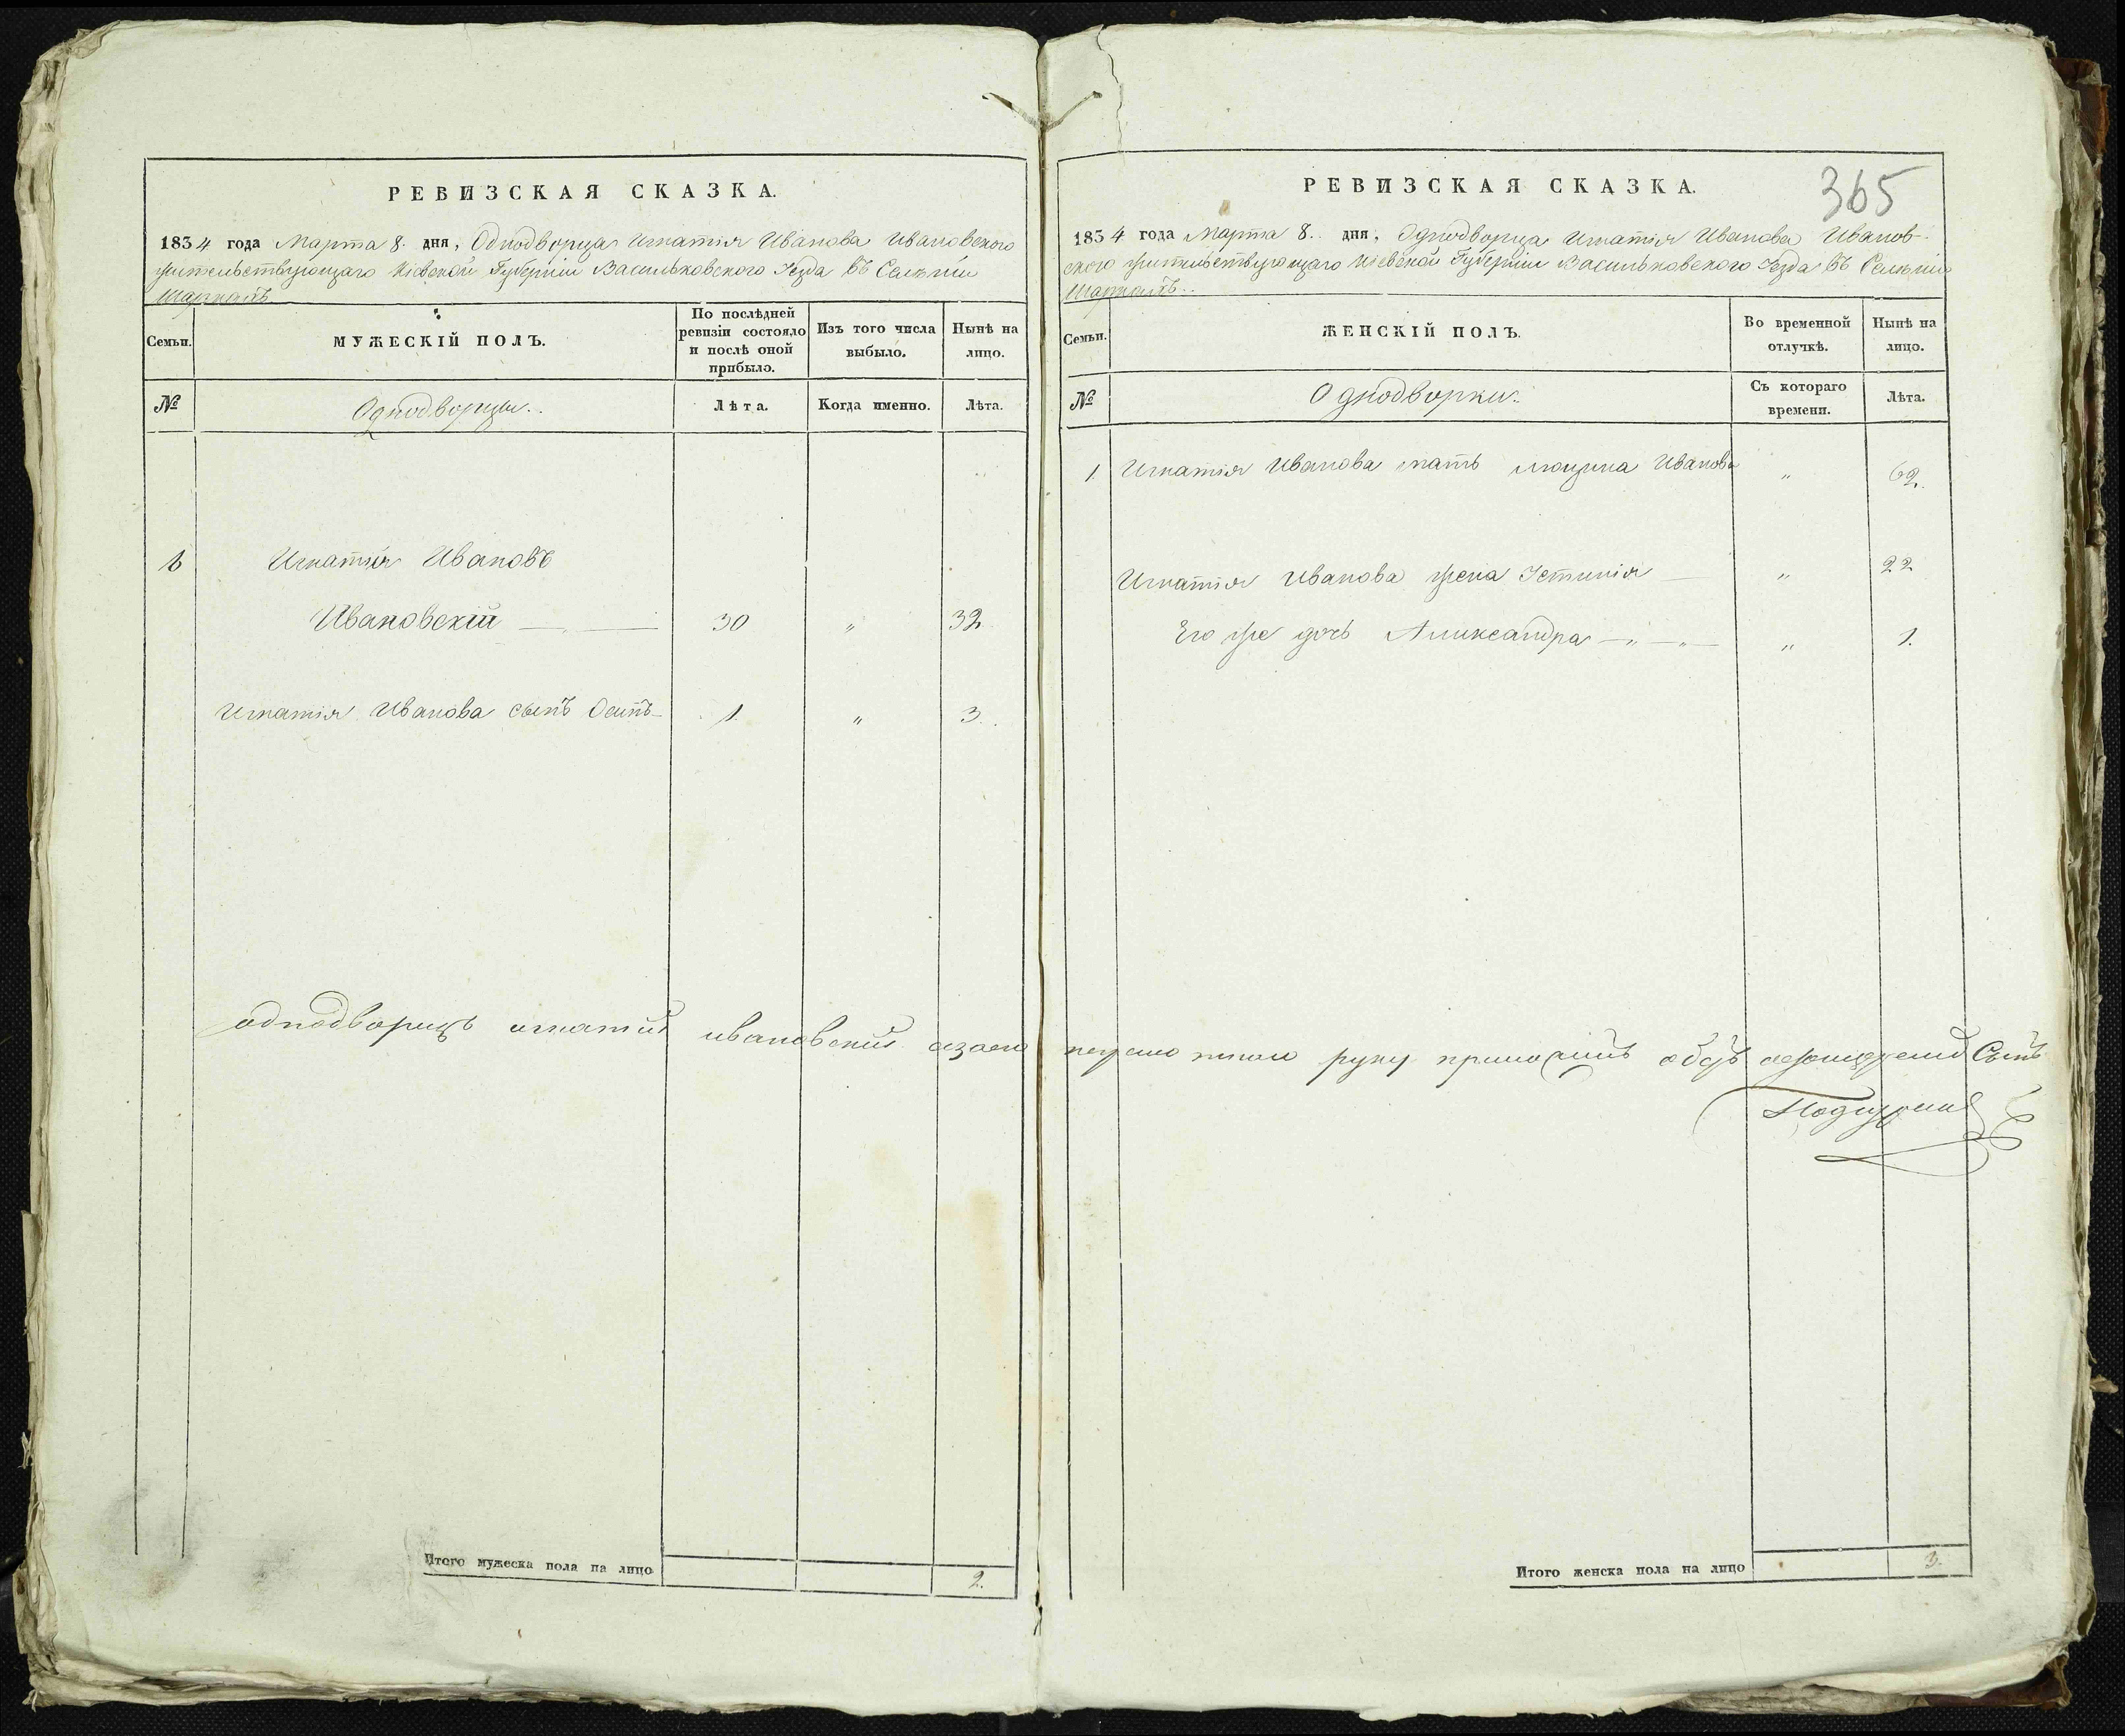 РЕВИЗСКАЯ СКАЗКА.
1834 года Марта 8. дня, Однодворца Игнатія Иванова Ивановского
жительствующаго Кіевской Губерніи Васильковского Уезда въ Селеніи
Шаркахъ
Семьи.
МУЖЕСКІЙ ПОЛЪ.
По послѣдней
ревизіи состояло
и послѣ оной
прибыло.
Изъ того числа
выбыло.
Нынѣ на
лицо.
№
Однодворцы.
Лѣта.
Когда именно.
Лѣта.
1 Игнатія Ивановъ
Ивановскій 30 „ 32
Игнатія Иванова сынъ Осипъ 1. „ 3.
однодворецъ игнатий ивановский
Итого мужеска пола на лицо 2.
365
РЕВИЗСКАЯ СКАЗКА.
1834 года Марта 8. дня, Однодворца Игнатія Иванова Иванов-
ского жительствующаго Кіевской Губерніи Васильковского Уезда въ Селеніи
Шаркахъ.
Семьи.
ЖЕНСКІЙ ПОЛЪ.
Во временной
отлучкѣ.
Нынѣ на
лицо.
№
Однодворки.
Съ котораго
времени.
Лѣта.
1. Игнатія Иванова мать Иванова „ 62.
Игнатія Иванова жена Устинія „ 22
Его же дочь Александра „ 1.
руку
Итого женска пола на лицо 3.